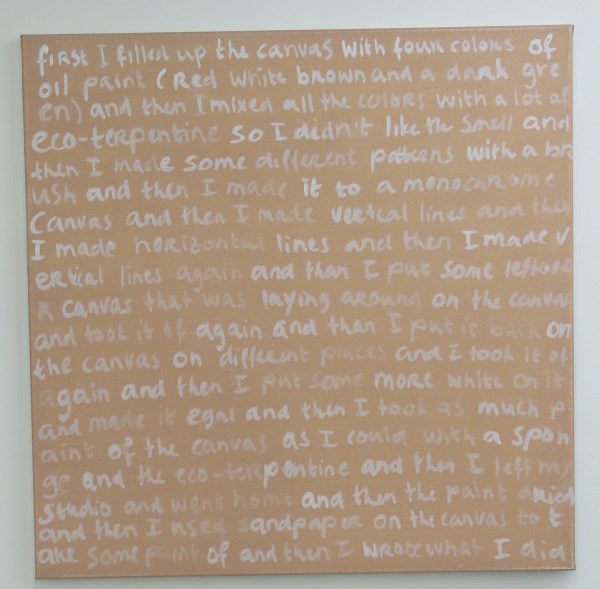 first I filled up the canvas with four colors of
oil paint (Red white brown and a dark gre
en) and then I mixed all the colors with a lot of
eco-terpentine so I didn't like the smell and
then I made some different patterns with a br
ush and then I made it to a monochrome
canvas and then I made vertical lines and then
I made horizontal lines and then I made v
ertical lines again and than I put some leftove
r canvas that was laying around on the canvas
and took it of again and than I put it back on
the canvas on different places and I took it of
again and then I put some more white on it
and made it egal and then I took as much p
aint of the canvas as I could with a spon
ge and the eco-terpentine and then I left my
studio and went home and then the paint dried
and then I used sandpaper on the canvas to t
ake some paint of and then I wrote what I did